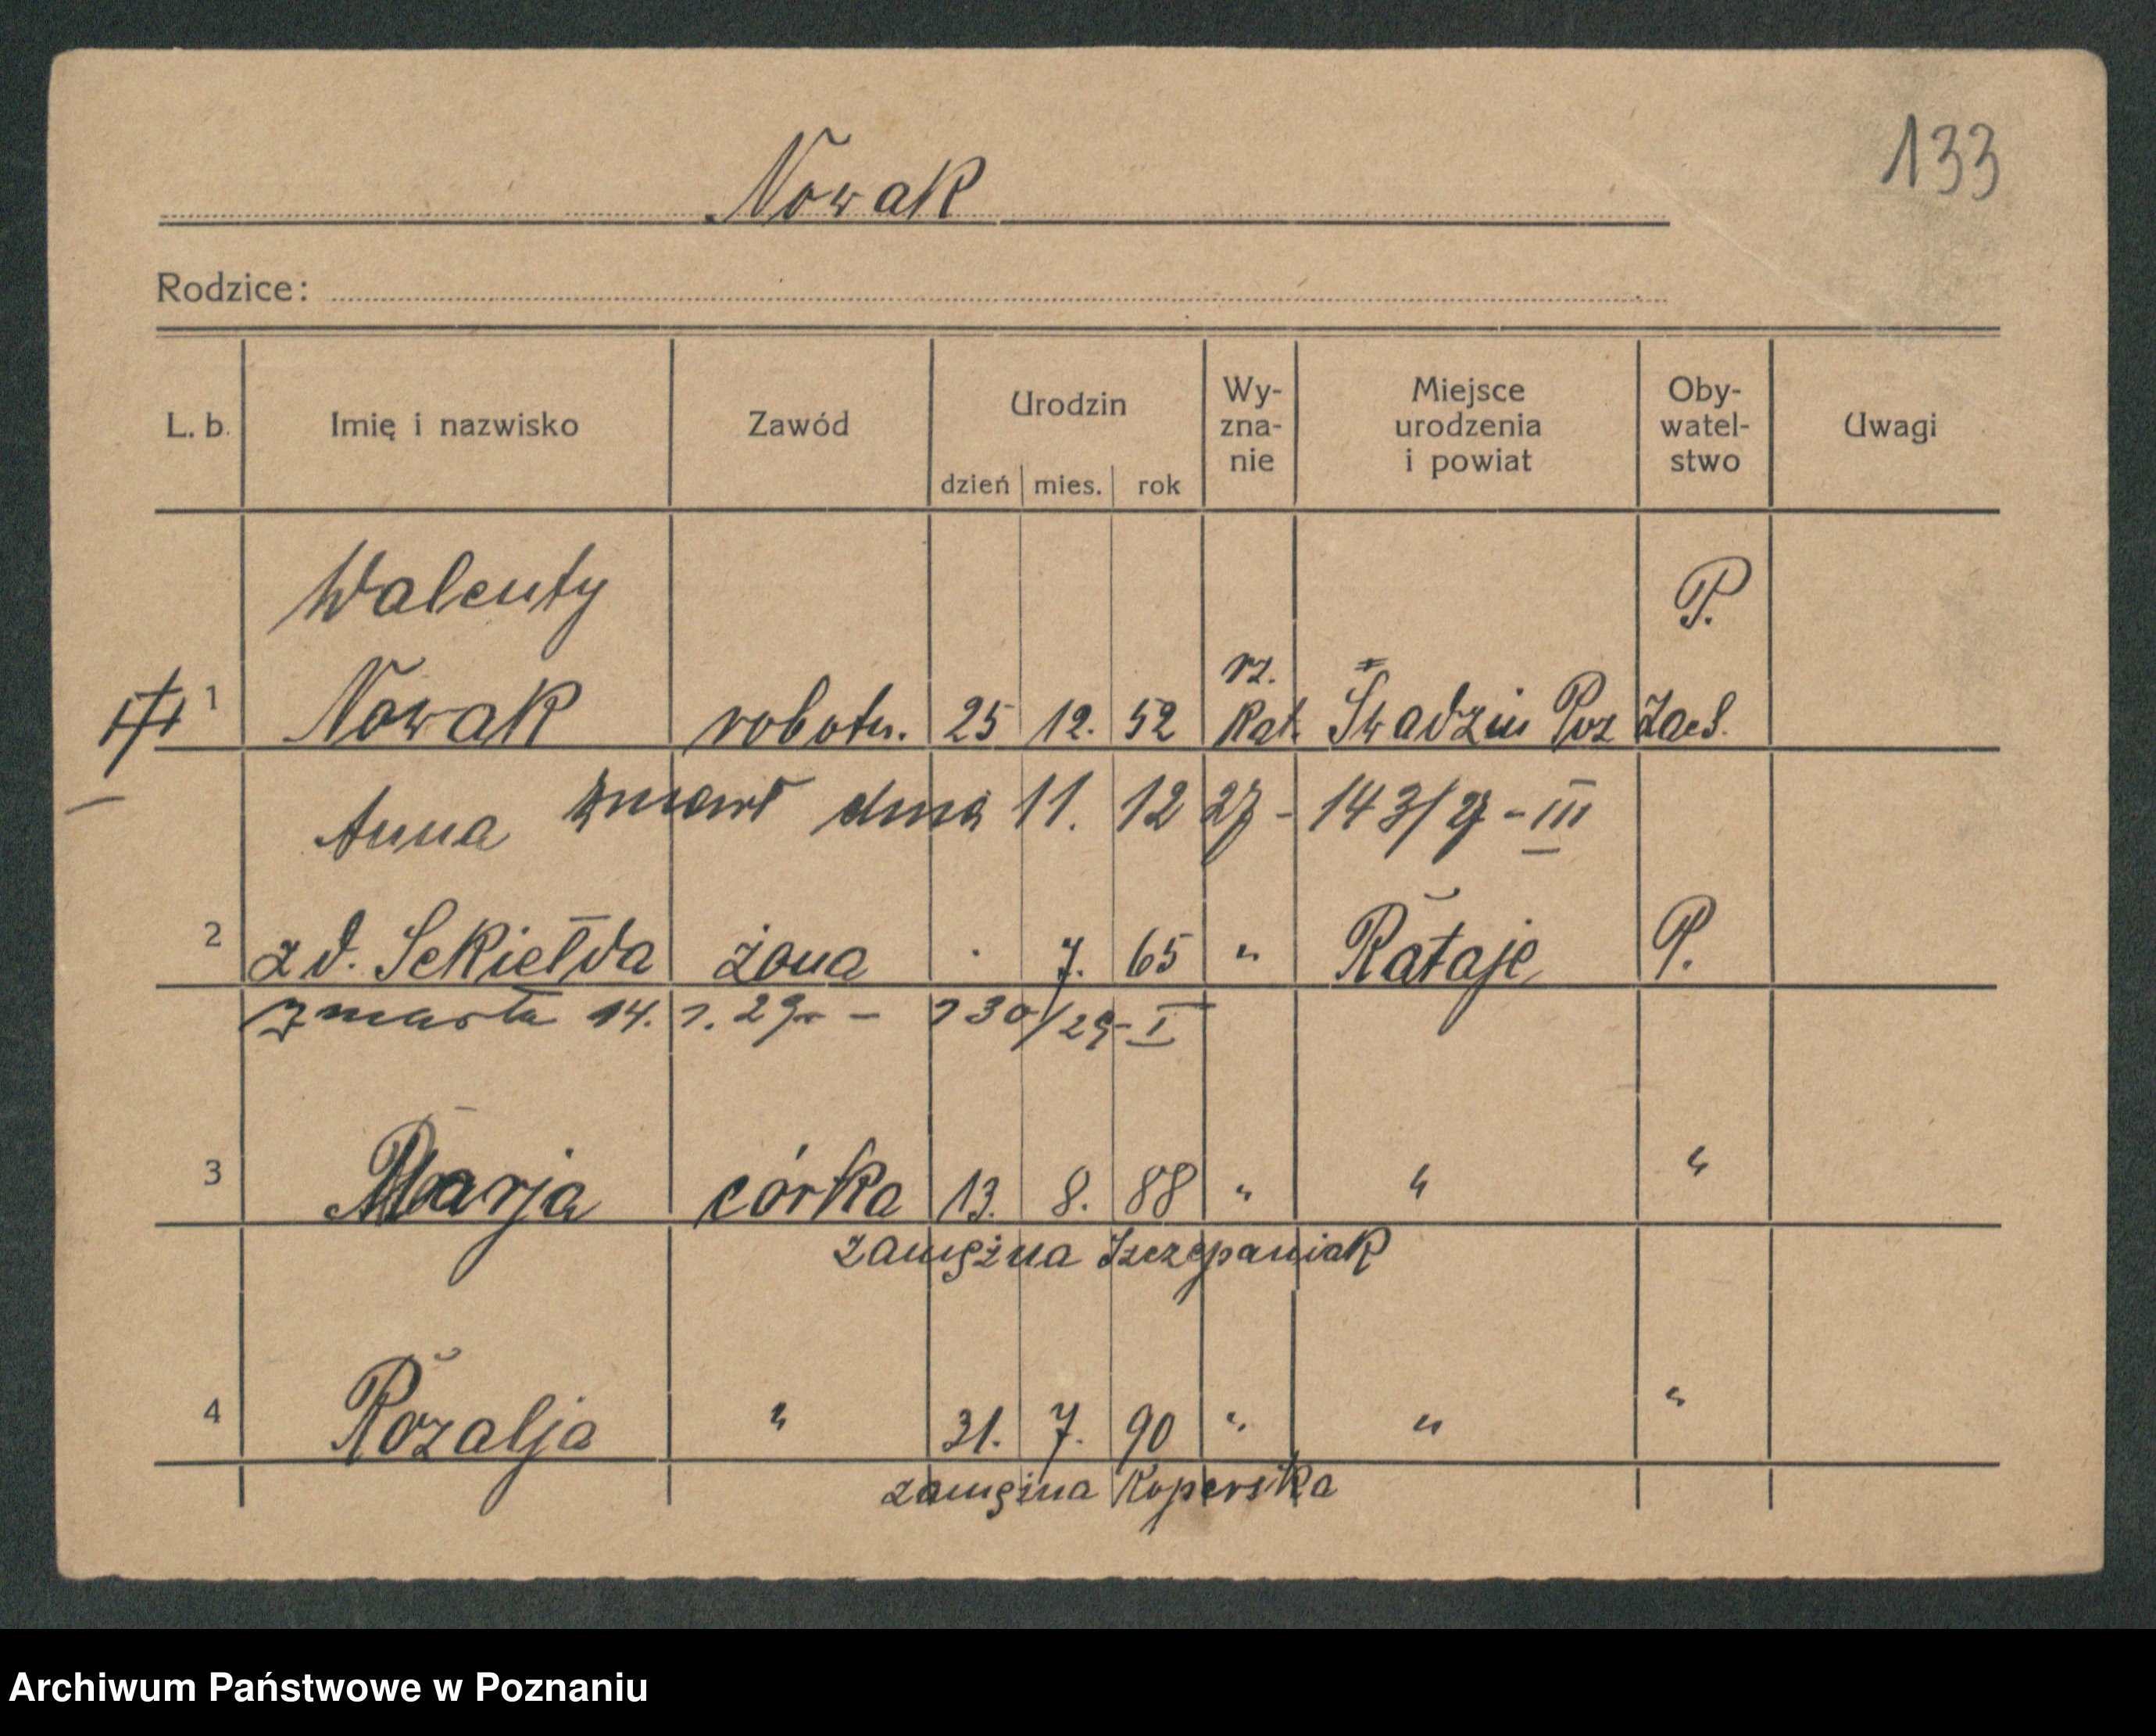 133
Nowak
Rodzice:
L. b. Imię i nazwisko Zawód Urodzin dzień mies. rok Wy-zna-nie Miejsce urodzenia i powiat Oby-watel-stwo Uwagi
Walenty P.
1 Nowak robotn. 25 12. 52 rz. kat. Swadzin Poz Zach.
zmarł dnia 11. 12 27 - 143/27 - III
Anna
2 z d. Sekiełda żona 7. 65 " Rataje P.
zmarła 14. 1. 29r - 130/29 - I
3 Marja córka 13. 8. 88 " " "
zamężna Szczepaniak
4 Rozalja " 31. 7. 90 " " "
zamężna Koperska
Archiwum Państwowe w Poznaniu